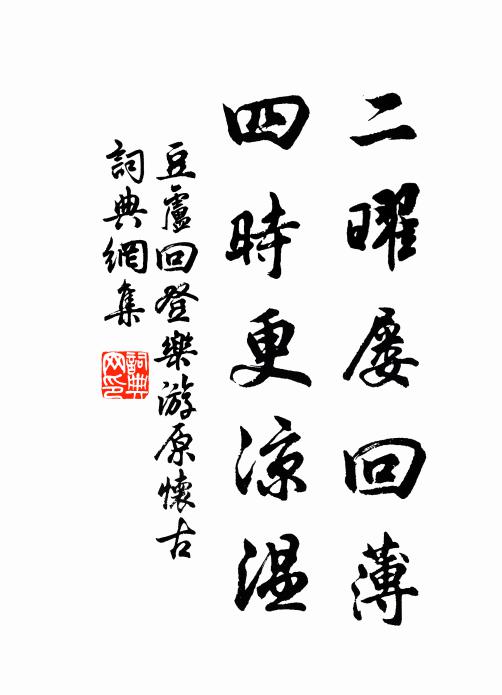 二曜屡回薄
四時更凉温
豆盧回登樂游原懷古
詞典網集
詞典网印